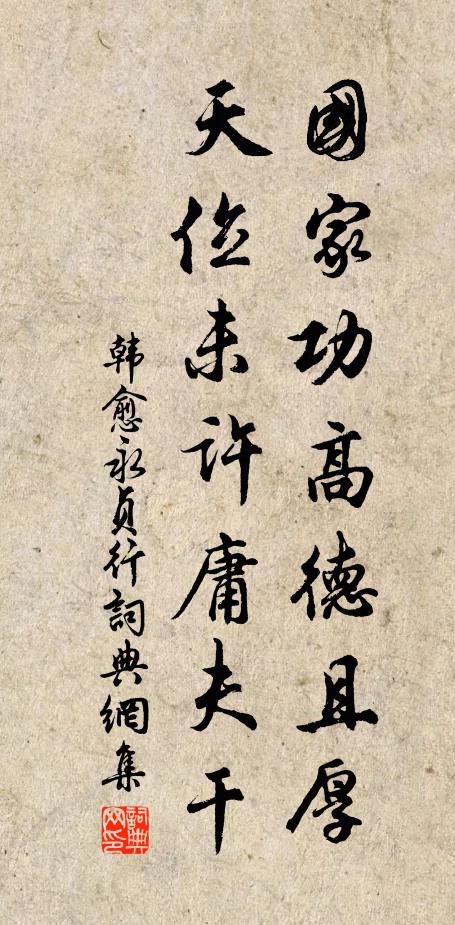 國家功高德且厚
天位未許庸夫干
韩愈永貞行詞典網集
詞典网印